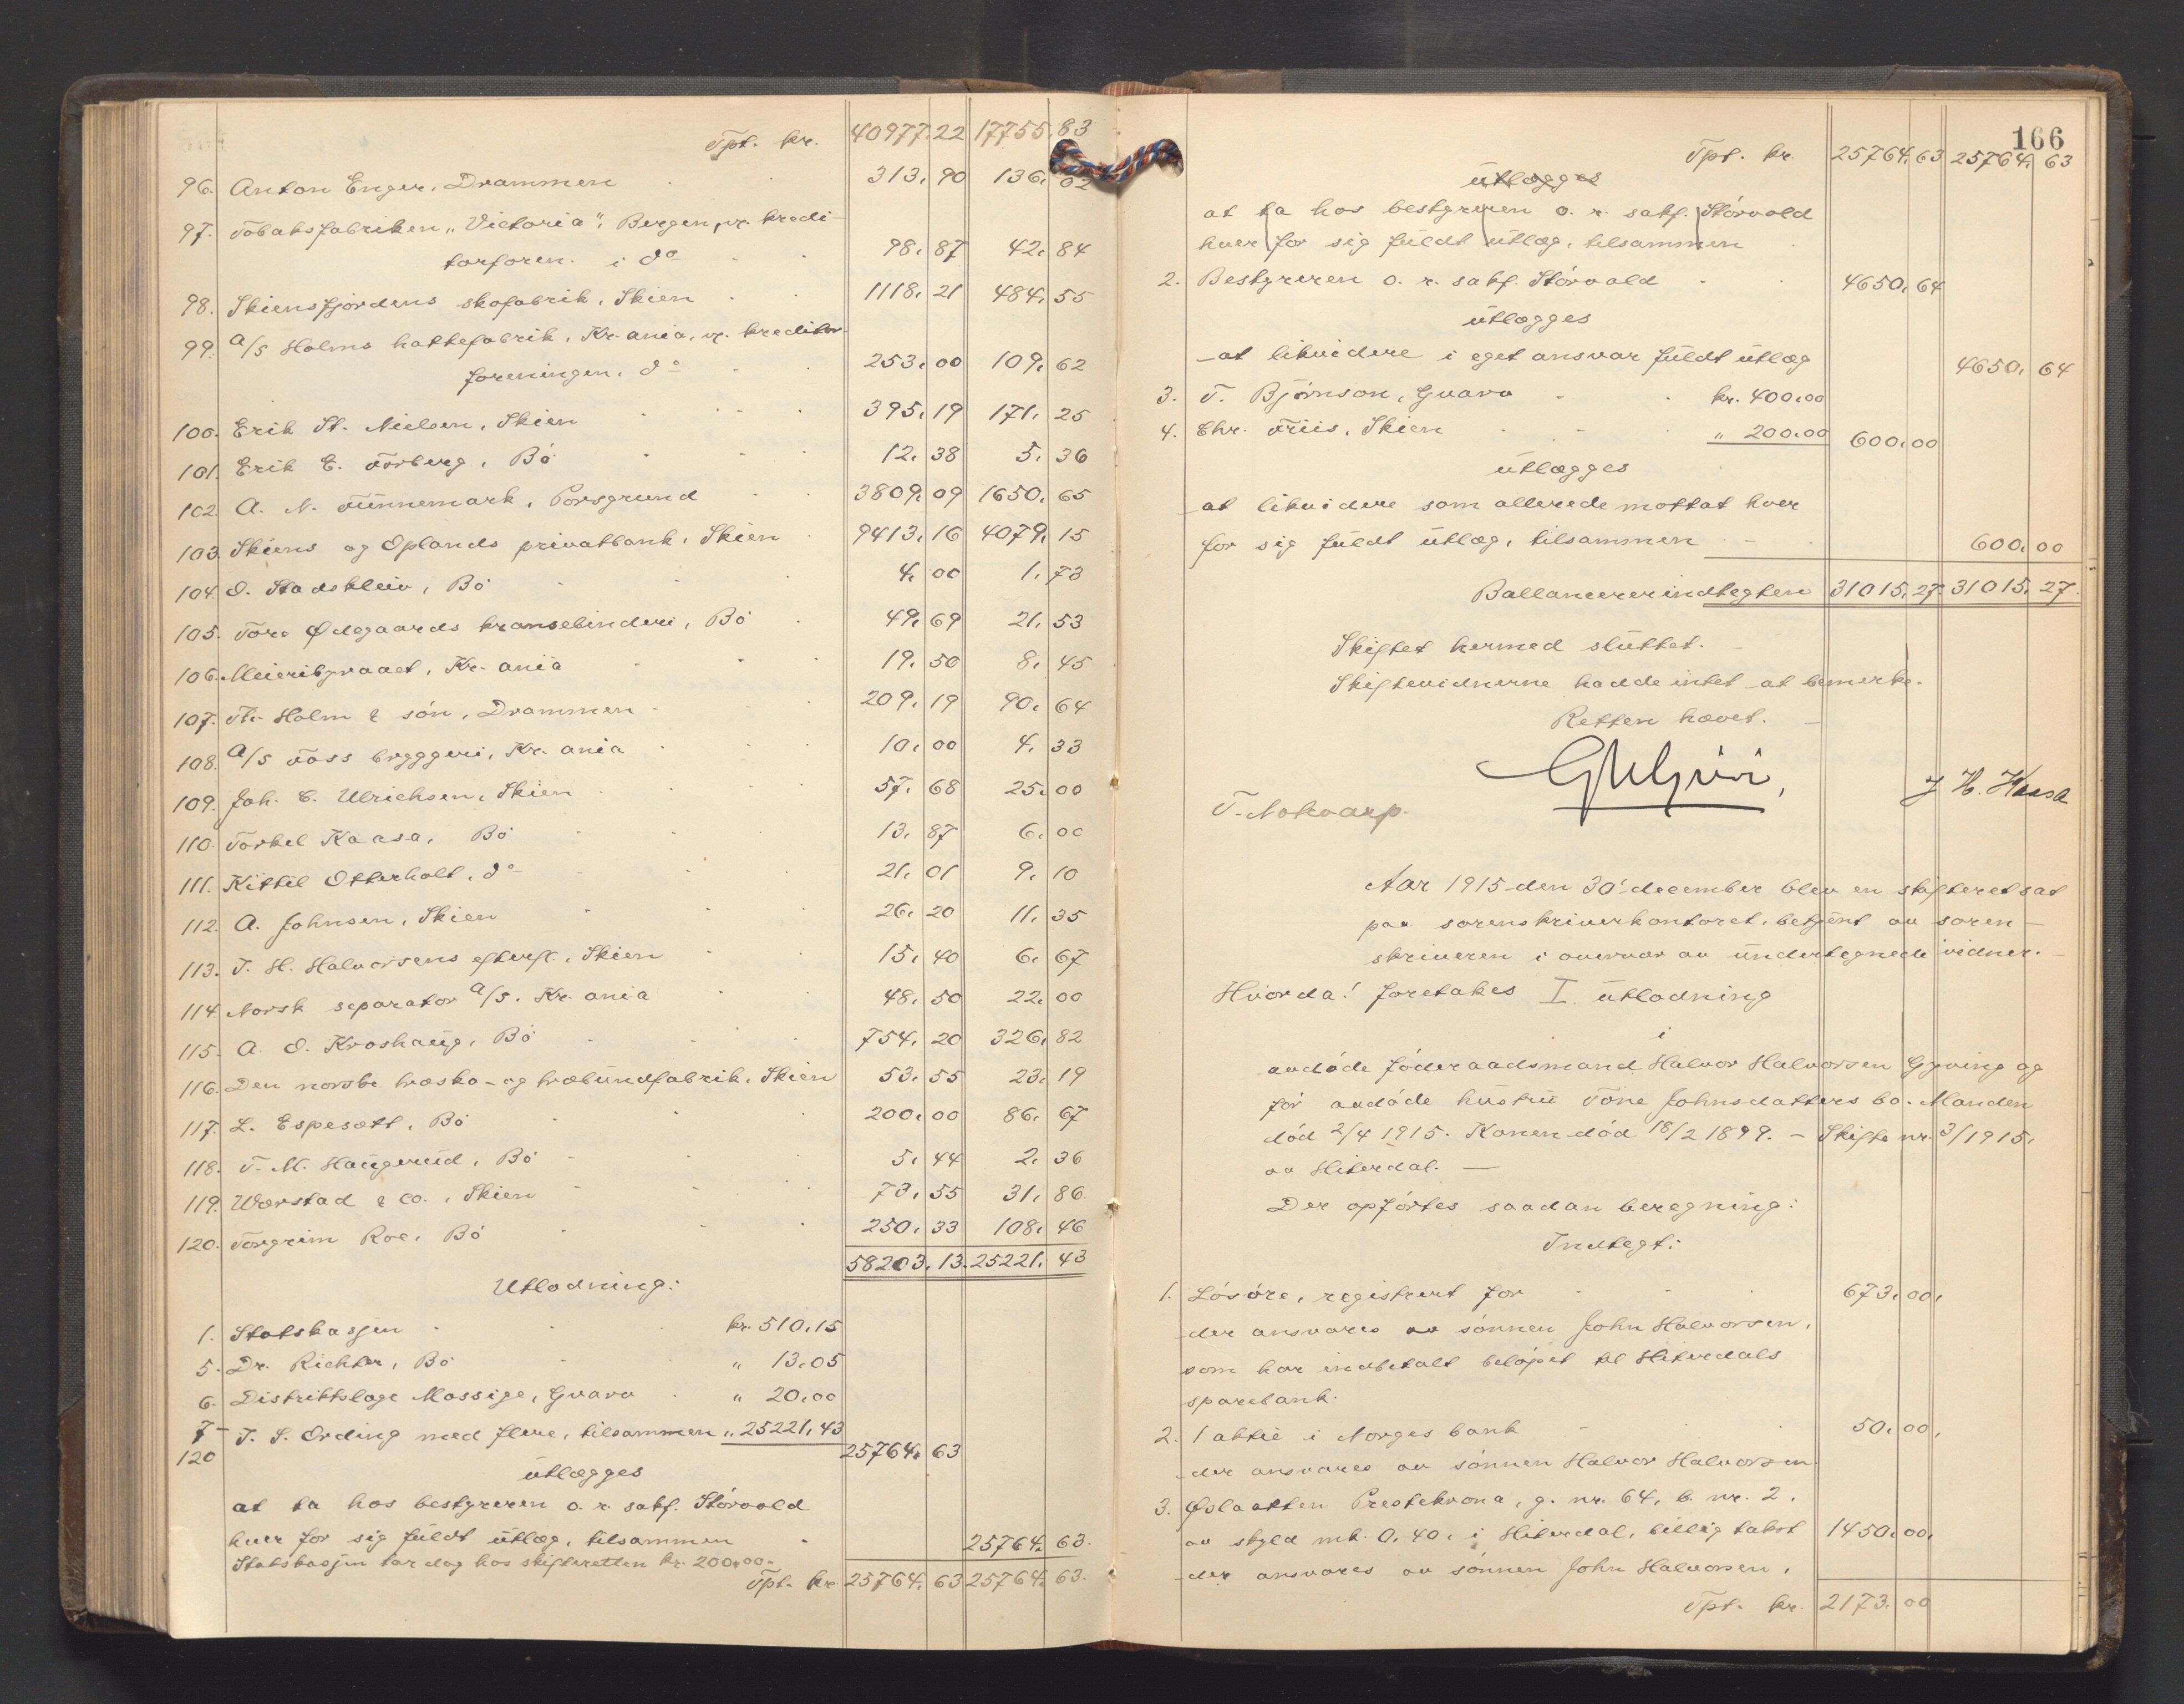 Tpt. kr. 40977.22 17755.83
96. Anton Enger, Drammen 313.90 136.02
97. Tobaksfabriken "Victoria", Bergen, pr. kredi-
torforen. i do 98.87 42.84
98. Skiensfjordens skofabrik, Skien 1118.21 484.55
99. A/S Holms hattefabrik, Kr.ania, pr. kreditor-
foreningen, do 253.00 109.62
100. Erik St. Nielsen, Skien 395.19 171.25
101. Erik E. Forberg, Bö 12.38 5.36
102. A. N. Funnemark, Porsgrund 3809.09 1650.65
103. Skiens og Oplands privatbank, Skien 9413.16 4079.15
104. O. Stadskleiv, Bö 4.00 1.73
105. Tore Ødegaards kransebinderi, Bö 49.69 21.53
106. Meieribyraaet, Kr.ania 19.50 8.45
107. Th. Holm & sön, Drammen 209.19 90.64
108. A/S Foss bryggeri, Kr.ania 10.00 4.33
109. Joh. C. Ulrichsen, Skien 57.68 25.00
110. Torkel Kaasa, Bö 13.87 6.00
111. Kittil Otterholt, do 21.01 9.10
112. A. Johnsen, Skien 26.20 11.35
113. T. H. Halvorsens efterf., Skien 15.40 6.67
114. Norsk separator A/S, Kr.ania 48.50 22.00
115. A. O. Kroshaug, Bö 754.20 326.82
116. Den norske træsko- og træbundfabrik, Skien 53.55 23.19
117. L. Espesett, Bö 200.00 86.67
118. T. M. Haugerud, Bö 5.44 2.36
119. Wærstad & co., Skien 73.55 31.86
120. Torgrim Roe, Bö 250.33 108.46
58203.13 25221.43
Utlodning:
1. Statskassen kr. 510.15
5. Dr. Richter, Bö " 13.05
6. Distriktslæge Mossige, Gvarv " 20.00
7- T. S. Ording med flere, tilsammen " 25221.43
120 25764.63
utlægges
at ta hos bestyreren o. r. sakf. Störvold
hver for sig fuldt utlæg, tilsammen 25764.63
Statskassen tar dog hos skifteretten kr. 200.00.
Tpt. kr. 25764.63 25764.63
166
Tpt. kr. 25764.63 25764.63
utlægges
at ta hos bestyreren o. r. sakf. Störvold
hver for sig fuldt utlæg, tilsammen
2. Bestyreren o. r. sakf. Störvold 4650.64
utlægges
at likvidere i eget ansvar fuldt utlæg 4650.64
3. T. Björnson, Gvarv kr. 400.00
4. Chr. Friis, Skien " 200.00 600.00
utlægges
at likvidere som allerede mottat hver
for sig fuldt utlæg, tilsammen 600.00
Ballancererindtegten 31015.27 31015.27
Skiftet hermed sluttet.
Skiftevidnerne hadde intet at bemerke.
Retten hævet.
T. Notvarp.
J H. Kaasa
Aar 1915 den 30' december blev en skifteret sat
paa sorenskriverkontoret, betjent av soren-
skriveren i overvær av undertegnede vidner.
Hvorda! foretakes I. utlodning
i
avdöde föderaadsmand Halvor Halvorsen Gyving og
för avdöde hustru Töne Johnsdatters bo. Manden
död 2/4 1915. Konen död 18/2 1899. - Skifte nr. 3/1915,
av Hiterdal. -
Der opförtes saadan beregning:
Indtegt:
1. Lösöre, registrert for 673.00,
der ansvares av sönnen John Halvorsen,
som har indbetalt belöpet til Hiterdals
sparebank.
2. 1 aktie i Norges bank 50.00,
der ansvares av sönnen Halvor Halvorsen
3. Øslaatten Prestekvona, g. nr. 64, b. nr. 2,
av skyld mk. 0,40, i Hiterdal, billig takst 1450.00,
der ansvares av sönnen John Halvorsen,
Tpt. kr. 2173.00